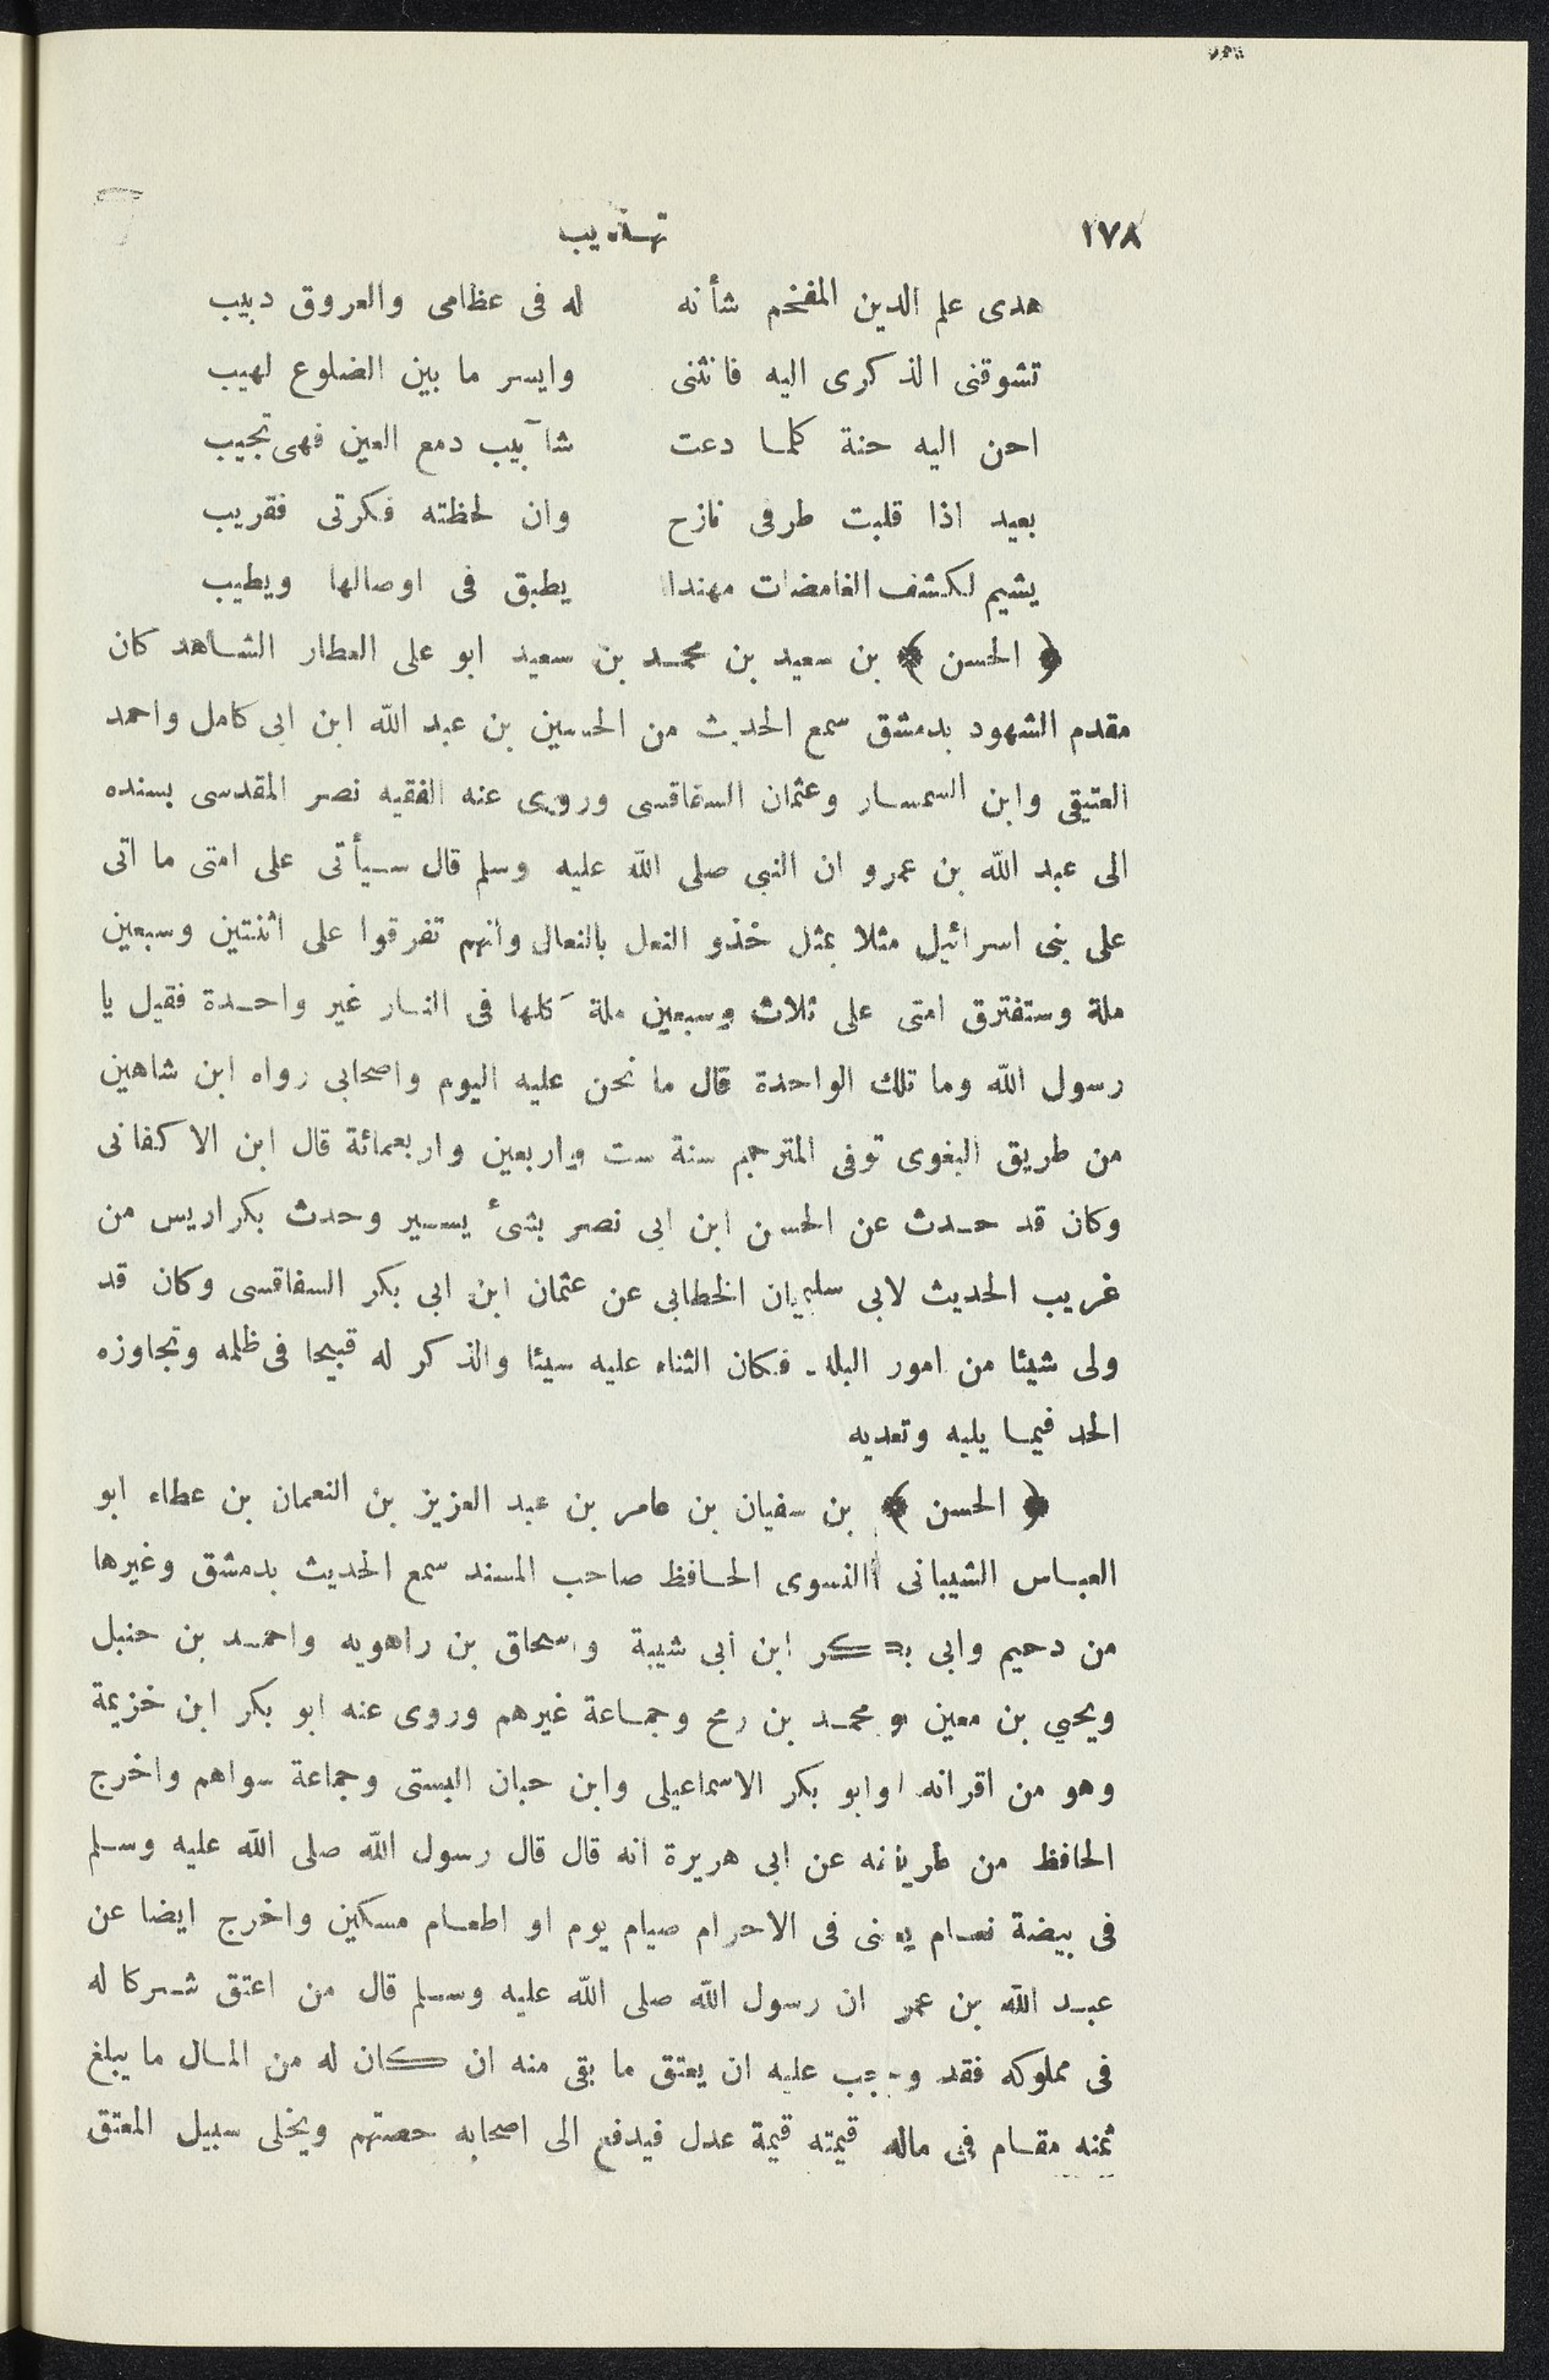 ١٧٨ تهذيب
هدى علم الدين المفخم شأنه له فى عظامى والعروق دبيب
تشوقنى الذكرى اليه فانثنى وايسر ما بين الضلوع لهيب
احن اليه حنة كلما دعت شآبيب دمع العين فهى تجيب
بعيد اذا قلبت طرفى نازح وان لحظته فكرتى فقريب
يشيم لكشف الغامضات مهندا يطبق فى اوصالها ويطيب
﴿ الحسن ﴾ بن سعيد بن محمد بن سعيد ابو على العطار الشاهد كان
مقدم الشهود بدمشق سمع الحديث من الحسين بن عبد الله ابن ابى كامل واحمد
العتيقى وابن السمسار وعثمان السفاقسى وروى عنه الفقيه نصر المقدسى بسنده
الى عبد الله بن عمرو ان النبى صلى الله عليه وسلم قال سيأتى على امتى ما اتى
على بنى اسرائيل مثلا بمثل خذو النعل بالنعال وانهم تفرقوا على اثنتين وسبعين
ملة وستفترق امتى على ثلاث وسبعين ملة كلها فى النار غير واحدة فقيل يا
رسول الله وما تلك الواحدة قال ما نحن عليه اليوم واصحابى رواه ابن شاهين
من طريق البغوى توفى المترجم سنة ست واربعين واربعمائة قال ابن الاكفانى
وكان قد حدث عن الحسن ابن ابى نصر بشئ يسير وحدث بكراريس من
غريب الحديث لابى سليمان الخطابى عن عثمان ابن ابى بكر السفاقسى وكان قد
ولى شيئا من امور البلد فكان الثناء عليه سيئا والذكر له قبيحا فى ظلمه وتجاوزه
الحد فيما يليه وتعديه
﴿ الحسن ﴾ بن سفيان بن عامر بن عبد العزيز بن النعمان بن عطاء ابو
العباس الشيبانى النسوى الحافظ صاحب المسند سمع الحديث بدمشق وغيرها
من دحيم وابى بكر ابن ابى شيبة واسحاق بن راهويه واحمد بن حنبل
ويحيى بن معين ومحمد بن رمح وجماعة غيرهم وروى عنه ابو بكر ابن خزيمة
وهو من اقرانه وابو بكر الاسماعيلى وابن حبان البستى وجماعة سواهم واخرج
الحافظ من طريقه عن ابى هريرة انه قال قال رسول الله صلى الله عليه وسلم
فى بيضة نعام يعنى فى الاحرام صيام يوم او اطعام مسكين واخرج ايضا عن
عبد الله بن عمر ان رسول الله صلى الله عليه وسلم قال من اعتق شركا له
فى مملوكه فقد وجب عليه ان يعتق ما بقى منه ان كان له من المال ما يبلغ
ثمنه مقام فى ماله قيمته قيمة عدل فيدفع الى اصحابه حصتهم ويخلى سبيل المعتق